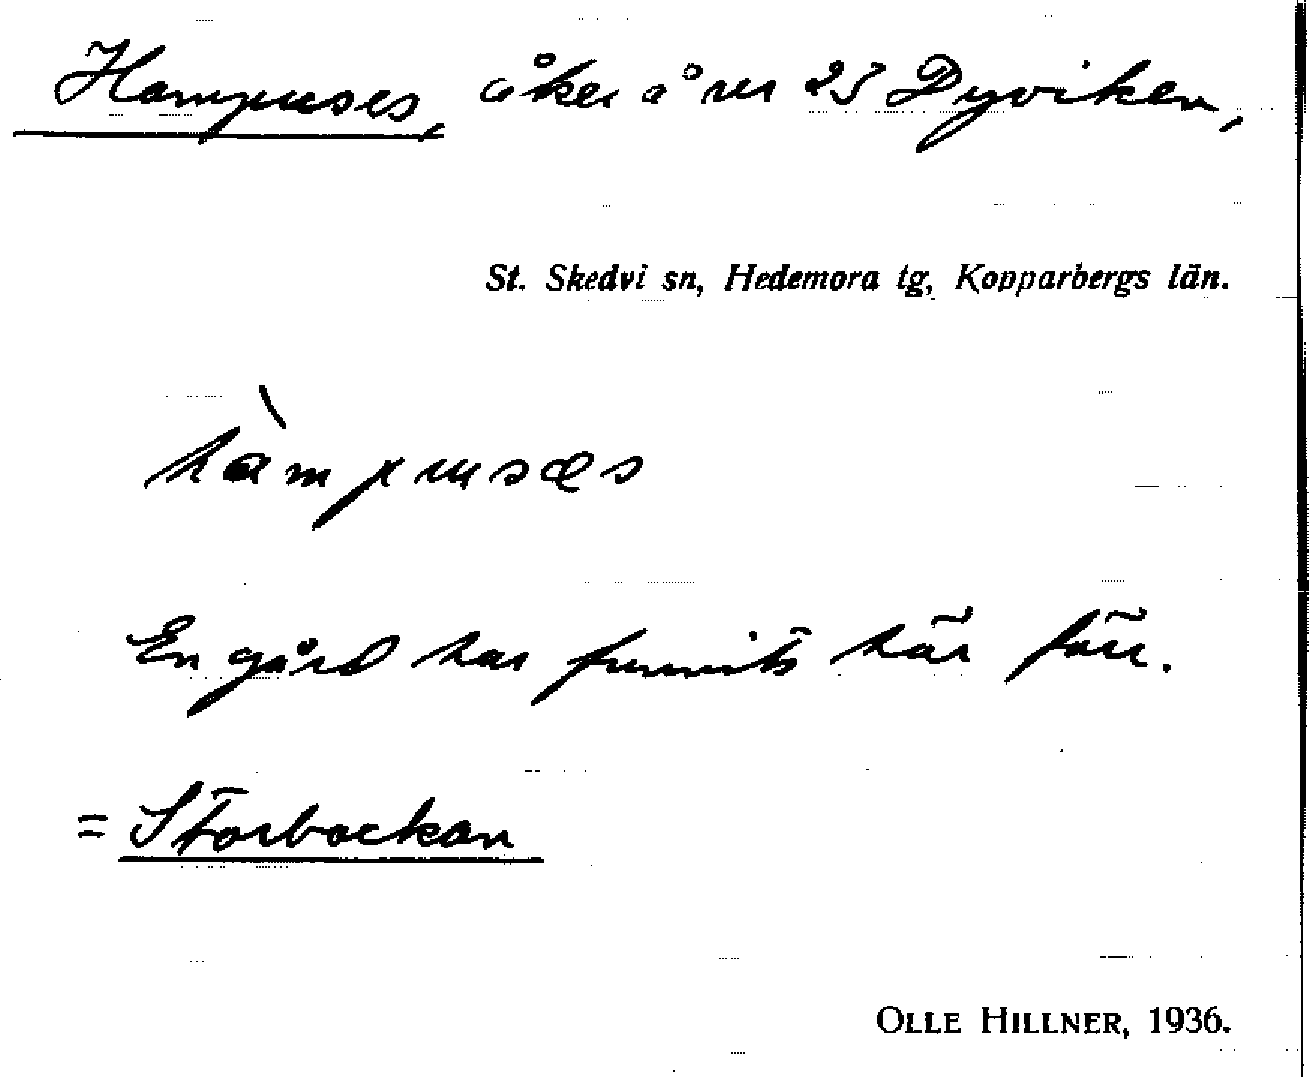 Hampuses, åker å nr 25 Dyviken,
St. Skedvi sn, Hedemora tg, Kopparbergs län.
hàmpusæs
En gård har funnits här förr.
= Storbackan
OLLE HILLNER, 1936.